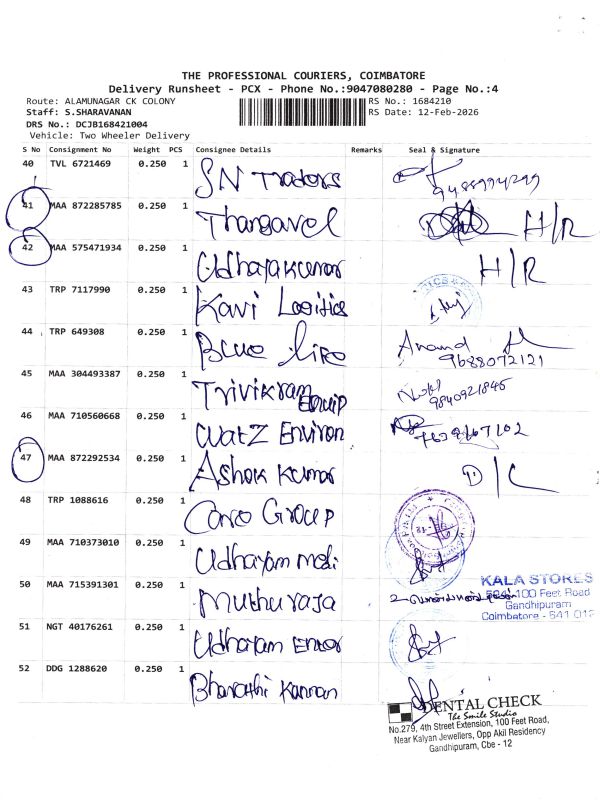 THE PROFESSIONAL COURIERS, COIMBATORE
Delivery Runsheet - PCX - Phone No.:9047080280 - Page No.:4
Route: ALAMUNAGAR CK COLONY RS No.: 1684210
Staff: S.SHARAVANAN RS Date: 12-Feb-2026
DRS No.: DCJB168421004
Vehicle: Two Wheeler Delivery
S No Consignment No Weight PCS Consignee Details Remarks Seal & Signature
40 TVL 6721469 0.250 1 SN Traders
9488994299
41 MAA 872285785 0.250 1 Thangavel H/R
42 MAA 575471934 0.250 1 Udhayakumar H/R
43 TRP 7117990 0.250 1 Kavi Logitics
44 TRP 649308 0.250 1 Blue Line Anand
9688072121
45 MAA 304493387 0.250 1 Trivikram Equip
9840921845
46 MAA 710560668 0.250 1 Watz Environ
47 MAA 872292534 0.250 1 Ashok Kumar D/C
48 TRP 1088616 0.250 1 Group
49 MAA 710373010 0.250 1 Udhayam Medi
50 MAA 715391301 0.250 1 Muthuraja
KALA STORES
100 Feet Road
Gandhipuram
Coimbatore - 641 012
51 NGT 40176261 0.250 1 Udhayam Enter
52 DDG 1288620 0.250 1 Bharathi Kannan
DENTAL CHECK
The Smile Studio
No.279, 4th Street Extension, 100 Feet Road,
Near Kalyan Jewellers, Opp Akil Residency
Gandhipuram, Cbe - 12